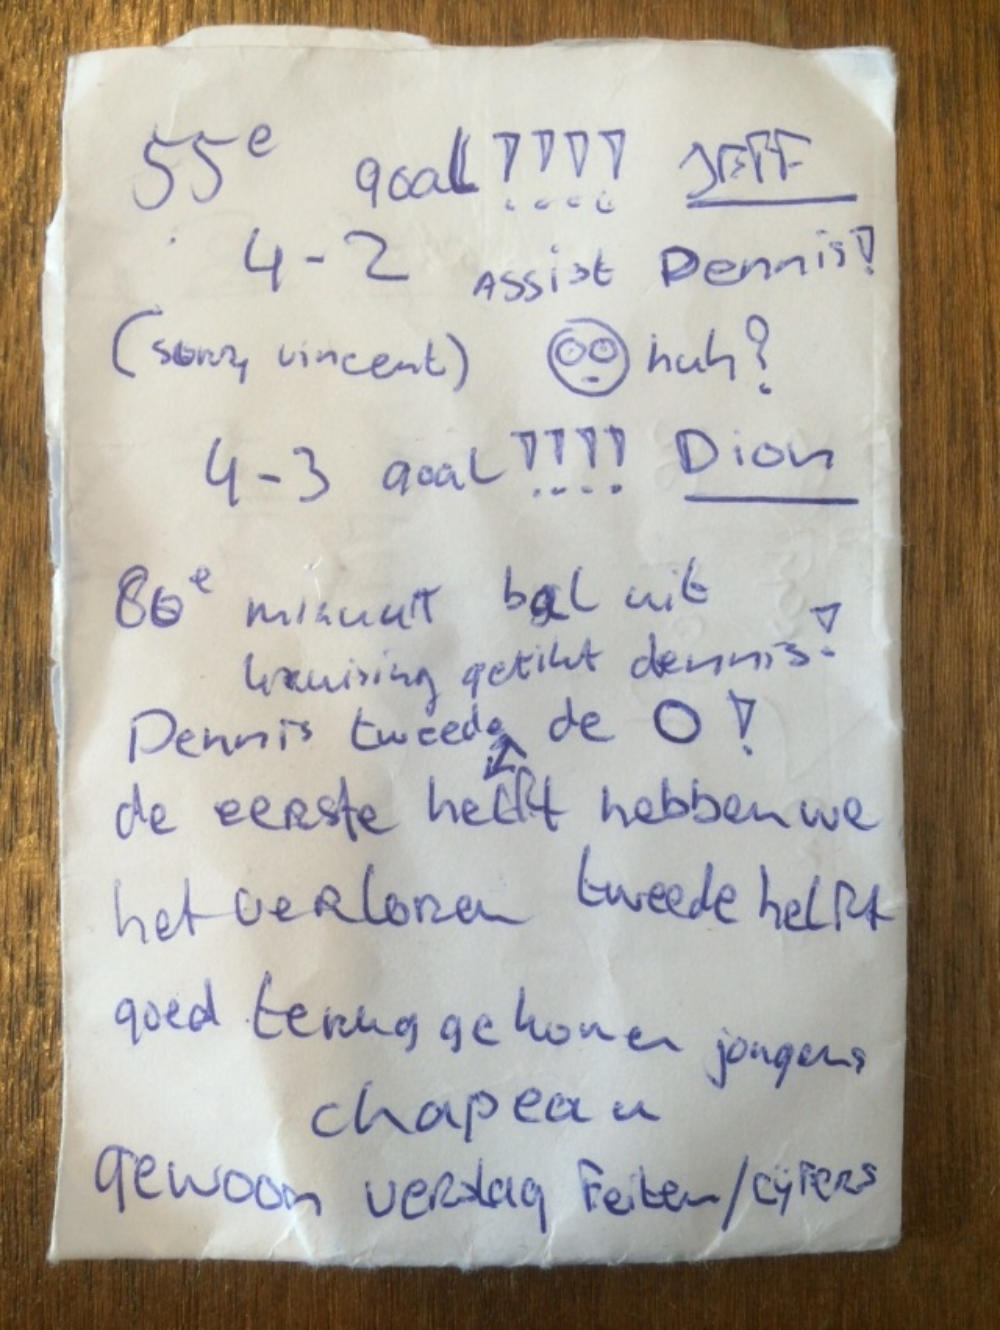 55e goal!!!! JEFF
4-2 Assist Dennis!
(sorry vincent) huh?
4-3 goal!!!! Dion
80e minuut bal uit
kruising getikt dennis!
Dennis tweede de O!
de eerste helft hebben we
het verloren tweede helft
goed terug gekomen jongens
chapeau
gewoon verslag Feiten/cijfers